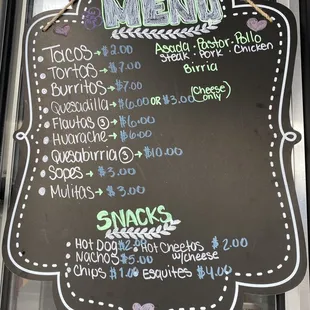 MENU
Tacos → $2.00
Tortas → $7.00
Burritos → $7.00
Quesadilla → $6.00 OR $3.00 (Cheese only)
Flautas (3) → $6.00
Huarache → $6.00
Quesabirria (3) → $10.00
Sopes → $3.00
Mulitas → $3.00
Asada · Pastor · Pollo
Steak · Pork · Chicken
Birria
SNACKS
Hot Dog $2.00 Hot Cheetos w/cheese $2.00
Nachos $5.00
Chips $1.00 Esquites $4.00